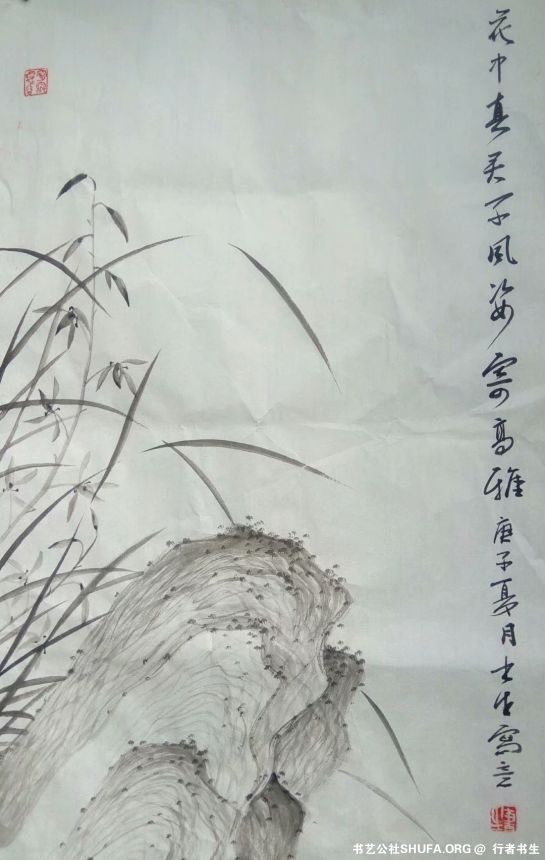 花中真君子風姿寄高雅庚子夏月书生寫意
书艺公社SHUFA.ORG @ 行者书生